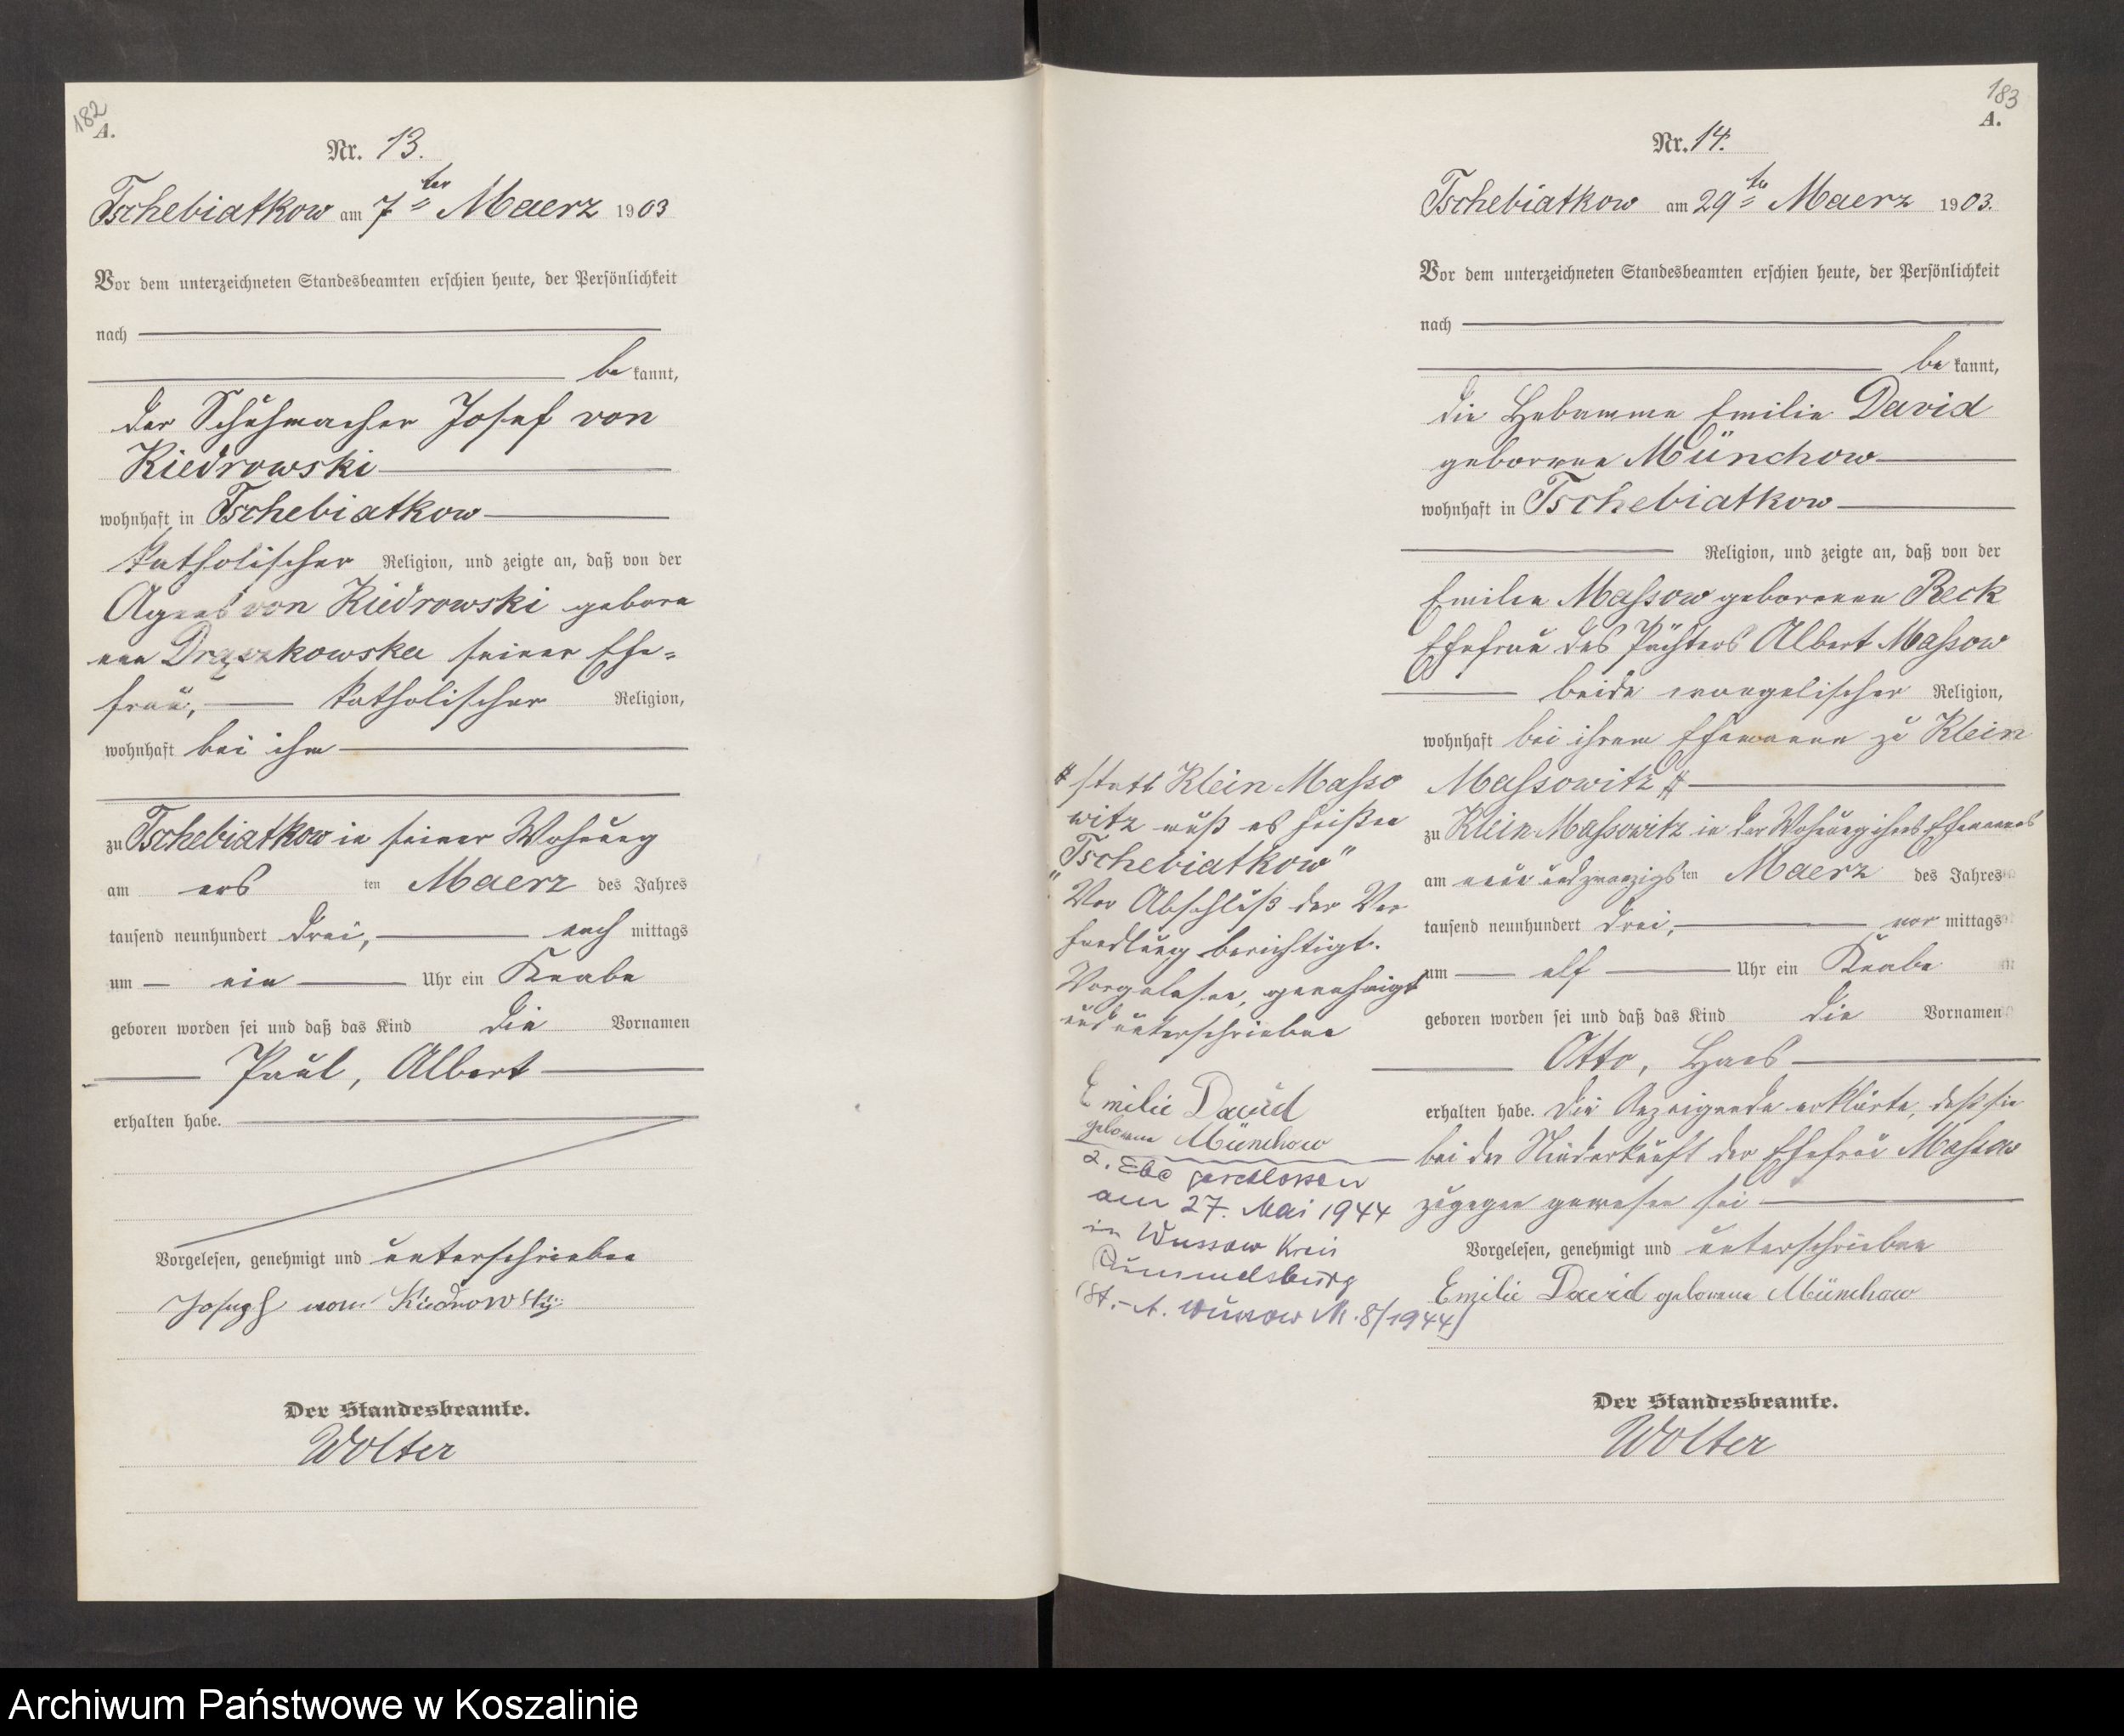 182
A.
Nr. 13.
Tschebiatkow am 7ten Maerz 1903
Vor dem unterzeichneten Standesbeamten erschien heute, der Persönlichkeit
nach
be kannt,
der Schuhmacher Josef von
Kiedrowski
wohnhaft in Tschebiatkow
katholischer Religion, und zeigte an, daß von der
Agnes von Kiedrowski gebore
nen seiner Ehe=
frau, katholischer Religion,
wohnhaft bei ihm
zu Tschebiatkow in seiner Wohnung
am ers ten Maerz des Jahres
tausend neunhundert drei, nach mittags
um ein Uhr ein Knabe
geboren worden sei und daß das Kind die Vornamen
Paul, Albert
erhalten habe.
Vorgelesen, genehmigt und unterschrieben
Joseph von
Der Standesbeamte.
Wolter
183
A.
Nr. 14.
Tschebiatkow am 29ten Maerz 1903.
Vor dem unterzeichneten Standesbeamten erschien heute, der Persönlichkeit
nach
be kannt,
die Hebamme Emilie David
geborene Münchow
wohnhaft in Tschebiatkow
Religion, und zeigte an, daß von der
Emilie Massow geborenen Reck
Ehefrau des Pächters Albert Massow
beide evangelischer Religion,
wohnhaft bei ihrem Ehemanne zu Klein
Massowitz #
zu Klein Massowitz in der Wohnung ihres Ehemannes
am neun und zwanzigs ten Maerz des Jahres
tausend neunhundert drei, vor mittags
um elf Uhr ein Knabe
geboren worden sei und daß das Kind die Vornamen
Otto, Hans
erhalten habe. Die Anzeigende erklärte, daß sie
bei der Niederkunft der Ehefrau Massow
zugegen gewesen sei
Vorgelesen, genehmigt und unterschrieben
Emilie David geborene Münchow
Der Standesbeamte.
Wolter
# statt Klein Masso
witz muß es heißen
"Tschebiatkow"
Vor Abschluß der Ver
handlung berichtigt.
Vorgelesen, genehmigt
und unterschrieben
Emilie David
geborene Münchow
2. Ehe geschlossen
am 27. Mai 1944
in Wussow Kreis
Rummelsburg
(St.-A. Wussow Nr. 8/1944)
Archiwum Państwowe w Koszalinie